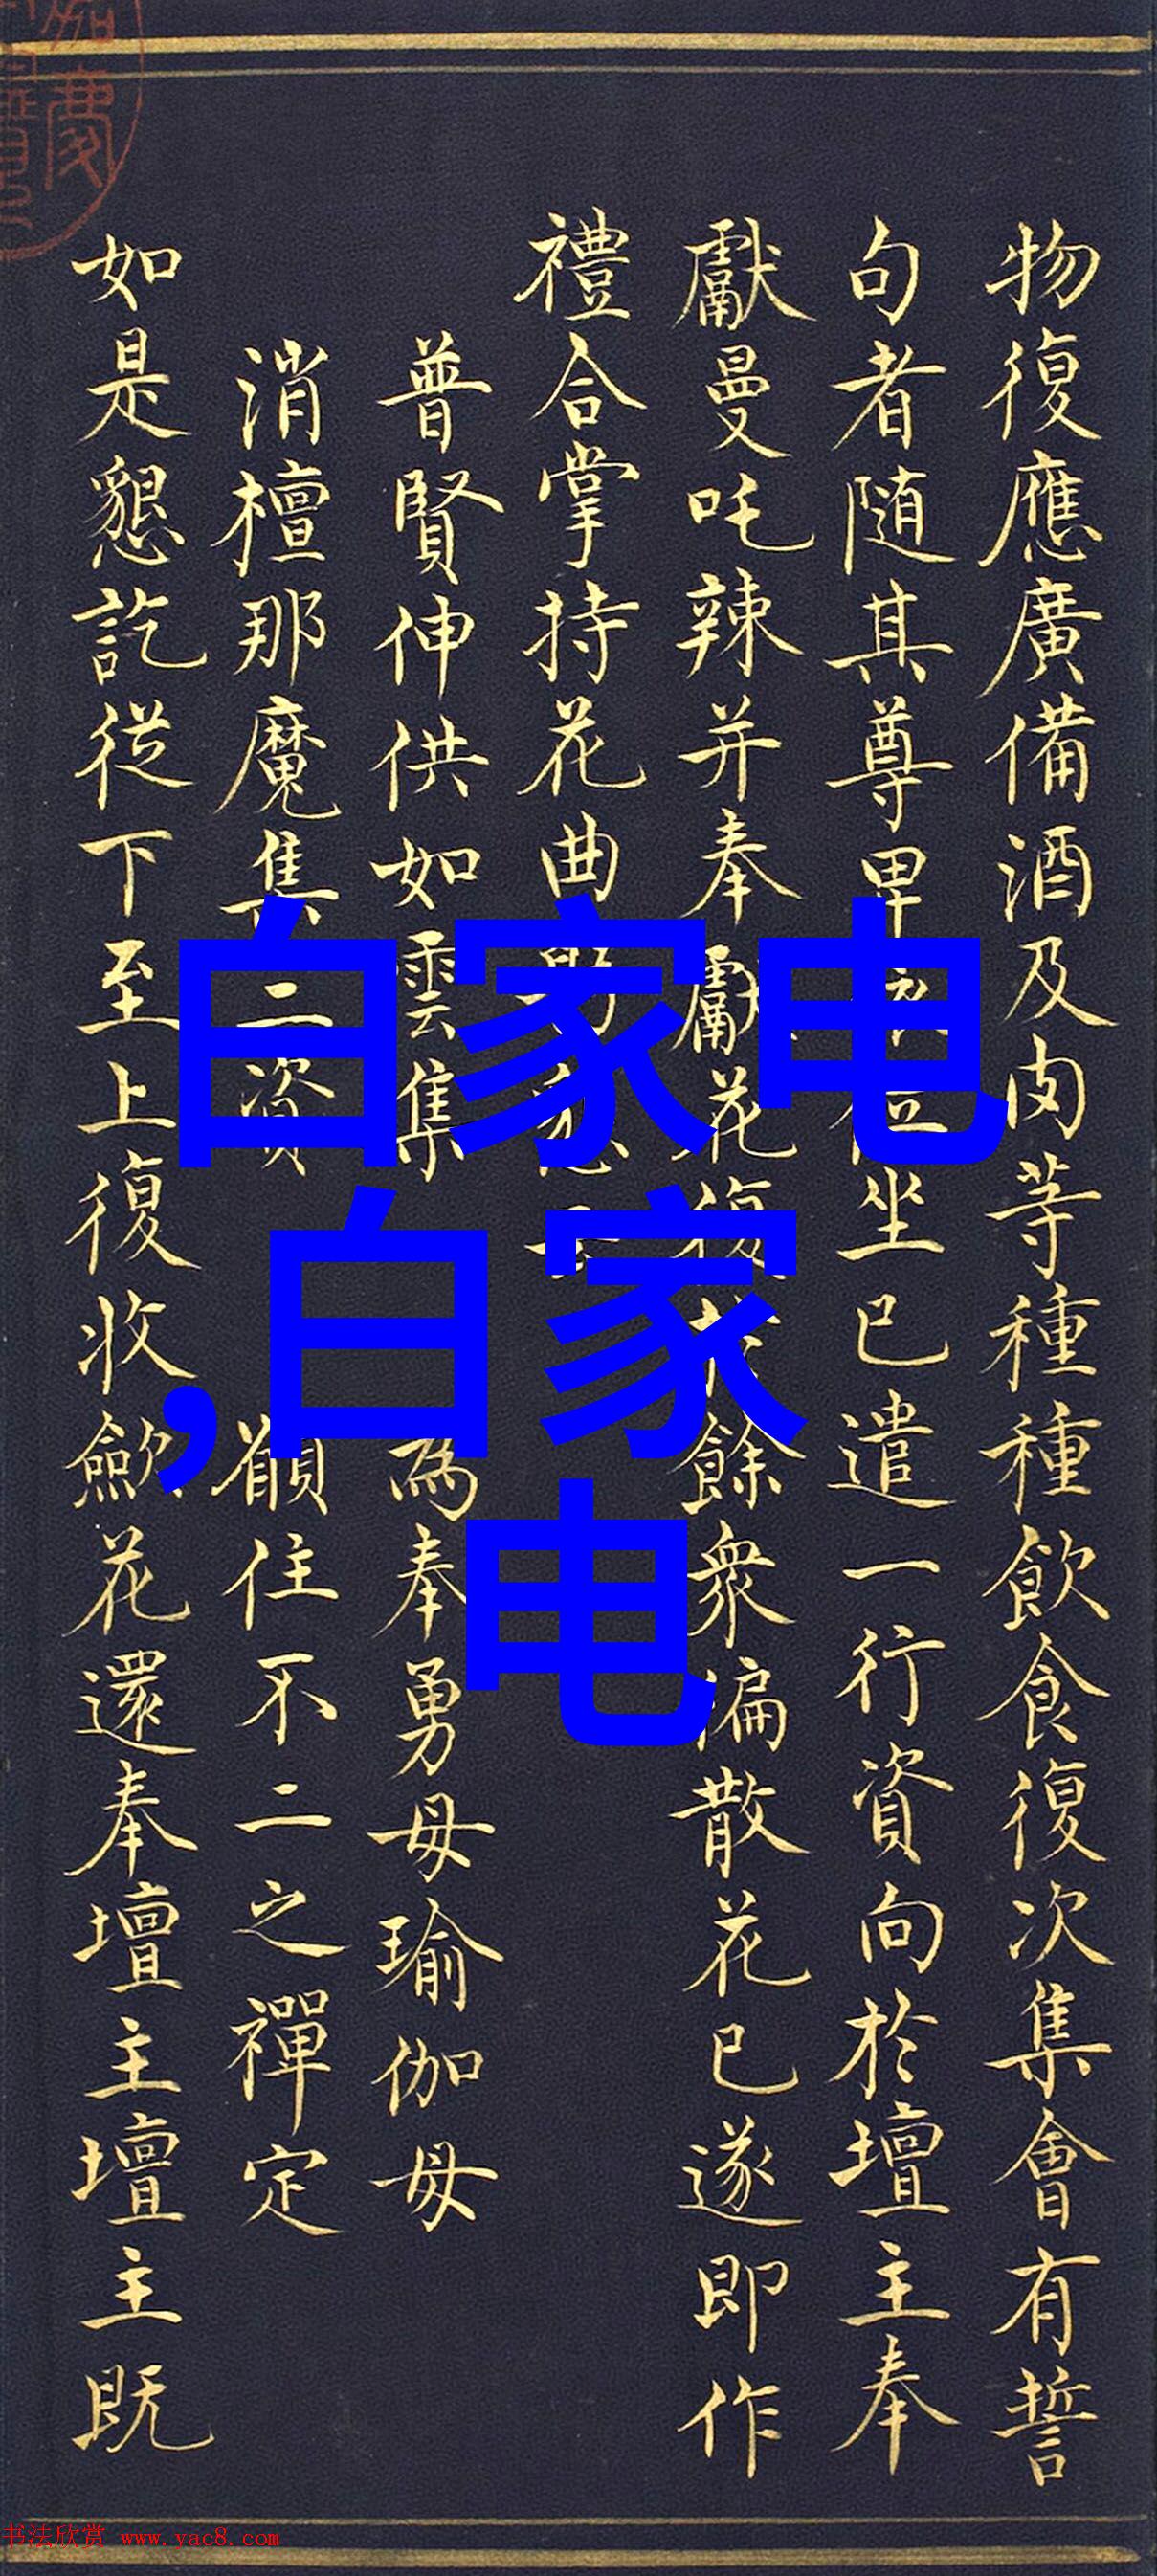 物復應廣備酒及肉等種種飲食復次集會有誓
句者随其尊卑位坐已遣一行資向於壇主奉
獻曼吒辣并奉獻花復餘衆徧散花已遂即作
禮合掌持花曲
普賢伸供如雲集 為奉勇母瑜伽母
消檀那魔集二資 願住不二之禪定
如是懇訖從下至上復收斂花還奉壇主壇主既
白家电
,白家
电
书法欣赏 www.yac8.com